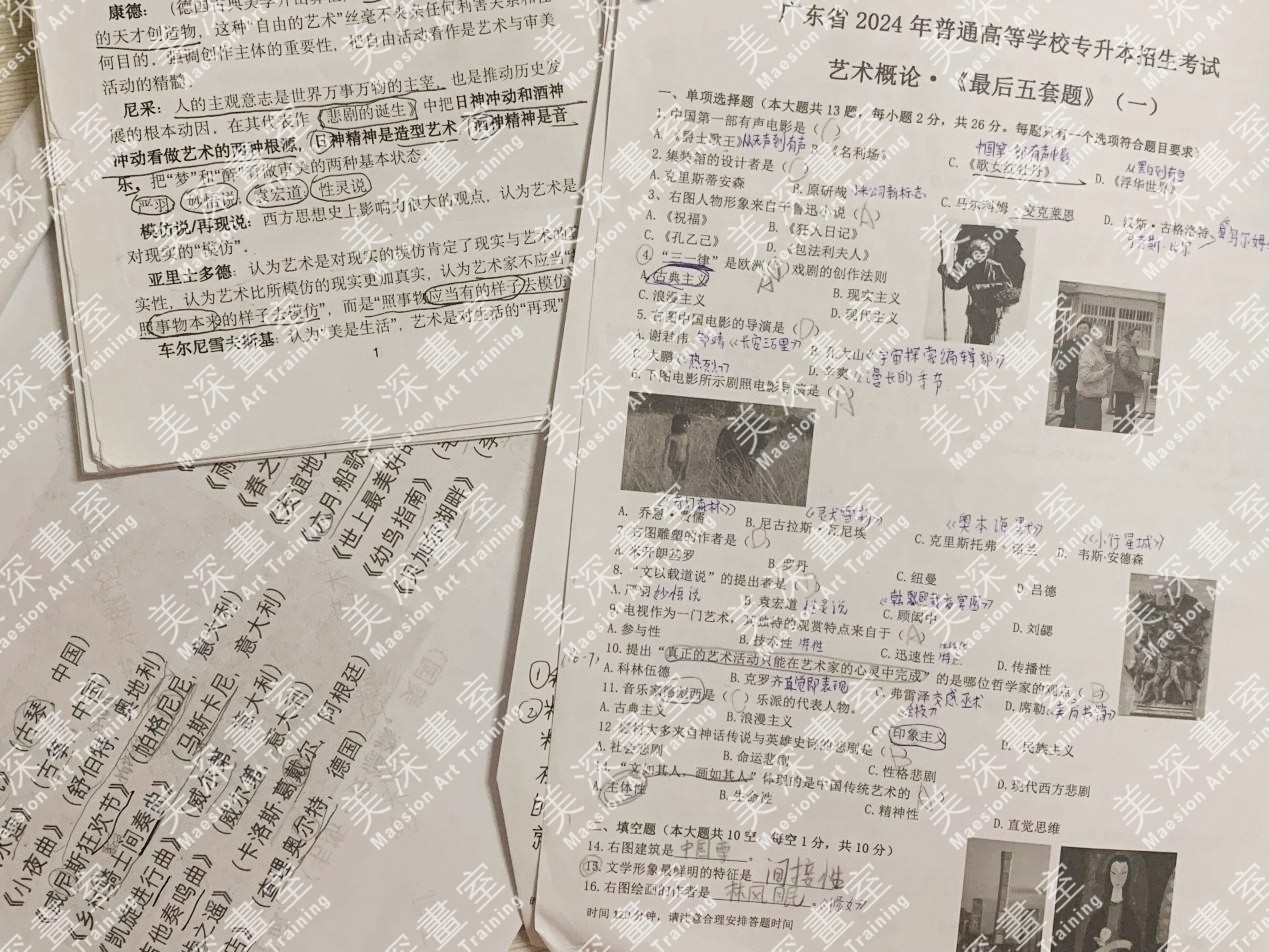 康德：
的天才创造物，这种“自由的艺术”丝毫不夹杂任何利害关系和任
何目的。强调创作主体的重要性，把自由活动看作是艺术与审美
活动的精髓。
尼采：人的主观意志是世界万事万物的主宰，也是推动历史发
展的根本动因。在其代表作《悲剧的诞生》中把日神冲动和酒神
冲动看做艺术的两种根源，日神精神是造型艺术，酒神精神是音
乐，把“梦”和“醉”看做审美的两种基本状态。
严羽 妙悟说 袁宏道 性灵说
模仿说/再现说：西方思想史上影响力很大的观点，认为艺术是
对现实的“模仿”。
亚里士多德：认为艺术是对现实的模仿肯定了现实与艺术的
实性，认为艺术比所模仿的现实更加真实，认为艺术家不应当“
照事物本来的样子去模仿”，而是“照事物应当有的样子去模仿
车尔尼雪夫斯基：认为“美是生活”，艺术是对生活的“再现”
1
《六月·船歌
《世上最美好的
《幼鸟指南》
《贝加尔湖畔》
(古琴，中国)
(古筝，中国)
(舒伯特，奥地利)
(帕格尼尼，意大利)
(马斯卡尼，意大利)
(威尔第，意大利)
(威尔第，意大利)
(卡洛斯·葛戴尔，阿根廷)
(查理·奥尔特，德国)
《小夜曲》
《威尼斯狂欢节》
《乡村骑士间奏曲》
《凯旋进行曲》
广东省2024年普通高等学校专升本招生考试
艺术概论·《最后五套题》（一）
一、单项选择题（本大题共13题，每小题2分，共26分。每题只有一个选项符合题目要求）
1.中国第一部有声电影是（ ）
A.《爵士歌王》从无声到有声 B.《名利场》 从黑白到有色 C.《歌女红牡丹》 中国第一部有声电影 D.《浮华世界》
2.集装箱的设计者是（ ）
A.克里斯蒂安森 B.原研哉 小米公司新标志 C.马尔科姆·麦克莱恩 D.汉斯·古格洛特
3、右图人物形象来自于鲁迅小说（A）
A.《祝福》 B.《狂人日记》
C.《孔乙己》 D.《包法利夫人》
④“三一律”是欧洲（A）戏剧的创作法则
A.古典主义 B.现实主义
C.浪漫主义 D.现代主义
5.右图中国电影的导演是（ ）
A.谢君伟 邹靖《长安三万里》 B.孔大山《宇宙探索编辑部》
C.大鹏《热烈》 D.辛爽《漫长的季节
6.下图电影所示剧照电影导演是（A）
《奇幻森林》
A.乔恩·费儒 B.尼古拉斯·瓦尼埃 《灵犬雪莉》 C.克里斯托弗·诺兰 《奥本海默》 D.韦斯·安德森 《小行星城》
7.右图雕塑的作者是（ ）
A.米开朗基罗 B.罗丹 C.纽曼 D.吕德
8.“文以载道说”的提出者是（ ）
A.严羽 妙悟说 B.袁宏道 性灵说 C.顾闳中 《韩熙载夜宴图》 D.刘勰
9.电视作为一门艺术，其独特的观赏特点来自于（A）
A.参与性 B.技术性 特性 C.迅速性 特性 D.传播性
10.提出“真正的艺术活动只能在艺术家的心灵中完成”的是哪位哲学家的观点（B）
A.科林伍德 B.克罗齐 直觉即表现 C.弗雷泽 交感巫术 《金枝》 D.席勒《美育书简》
11.音乐家德彪西是（ ）乐派的代表人物。
A.古典主义 B.浪漫主义 C.印象主义 D.民族主义
12.题材大多来自神话传说与英雄史诗的悲剧是（B）
A.社会悲剧 B.命运悲剧 C.性格悲剧 D.现代西方悲剧
“文如其人，画如其人”体现的是中国传统艺术的（A）
A.主体性 B.生命性 C.精神性 D.直觉思维
二、填空题（本大题共10空，每空1分，共10分）
14.右图建筑是 中国尊 。
15.文学形象最鲜明的特征是 间接性
16.右图绘画的作者是 林风眠 。《修女》
时间120分钟，请注意合理安排答题时间
美深畫室
Maesion Art Training